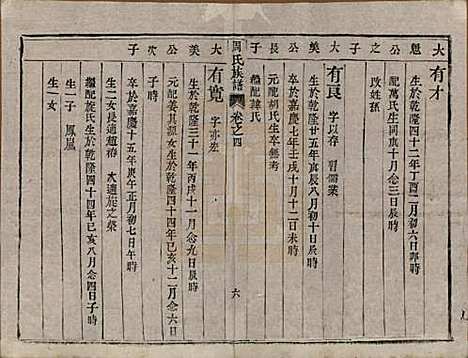 大 有才
魁 生於乾隆四十二年丁酉二月初六日卯時
公 配萬氏生同庚十月念三日辰時
之 改姓孫
子
大 有良 字以存 習儒業
美 生於乾隆廿五年庚辰八月初十日辰時
公 卒於嘉慶七年壬戌十月十二日未時
長 元配胡氏生卒無考
子 繼配韓氏
周氏族譜 卷之四 六
大 有寬 字亦宏
美 生於乾隆三十一年丙戌十一月念九日辰時
公 元配姜其淑女生於乾隆四十四年己亥十二月念六日
次 卒於嘉慶十五年庚午正月初七日午時
子 生一女長適趙 次適族之榮
繼配施氏生於乾隆四十四年己亥八月念四日子時
生一子 鳳鳳
生一女